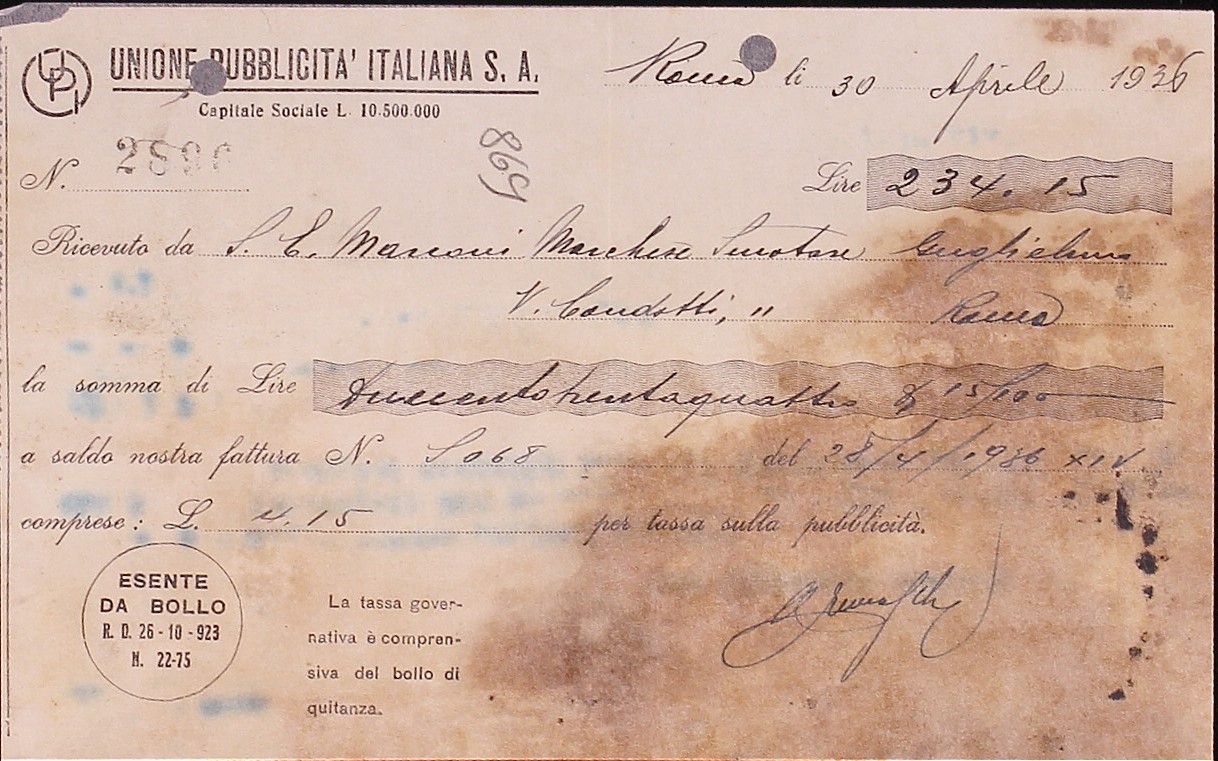 UPI
UNIONE PUBBLICITA' ITALIANA S. A.
Capitale Sociale L. 10.500.000
Roma li 30 Aprile 1936
869
N.
Lire 234.15
Ricevuto da S. E. Marconi Marchese Senatore Guglielmo
V. Condotti, " Roma
la somma di Lire duecentotrentaquattro & 15/100
a saldo nostra fattura N. 5068 del 28/4/1936 XIV
comprese: L. 4.15 per tassa sulla pubblicità.
ESENTE
DA BOLLO
R. D. 26-10-923
N. 22-75
La tassa gover-
nativa è compren-
siva del bollo di
quitanza.